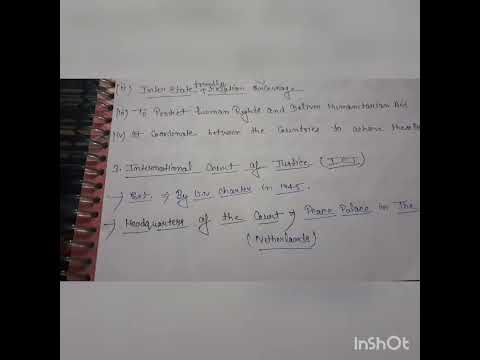 (ii) Inter State friendly relation encourage.
(iii) To Protect Human Rights and deliver Humanitarian Aid
(iv) Co-ordinate between the Countries to achieve these
3. International Court of Justice (I.C.J)
→ Est. → By U.N Charter in 1945.
→ Headquarters of the Court → Peace Palace in The
(Netherlands)
InShOt